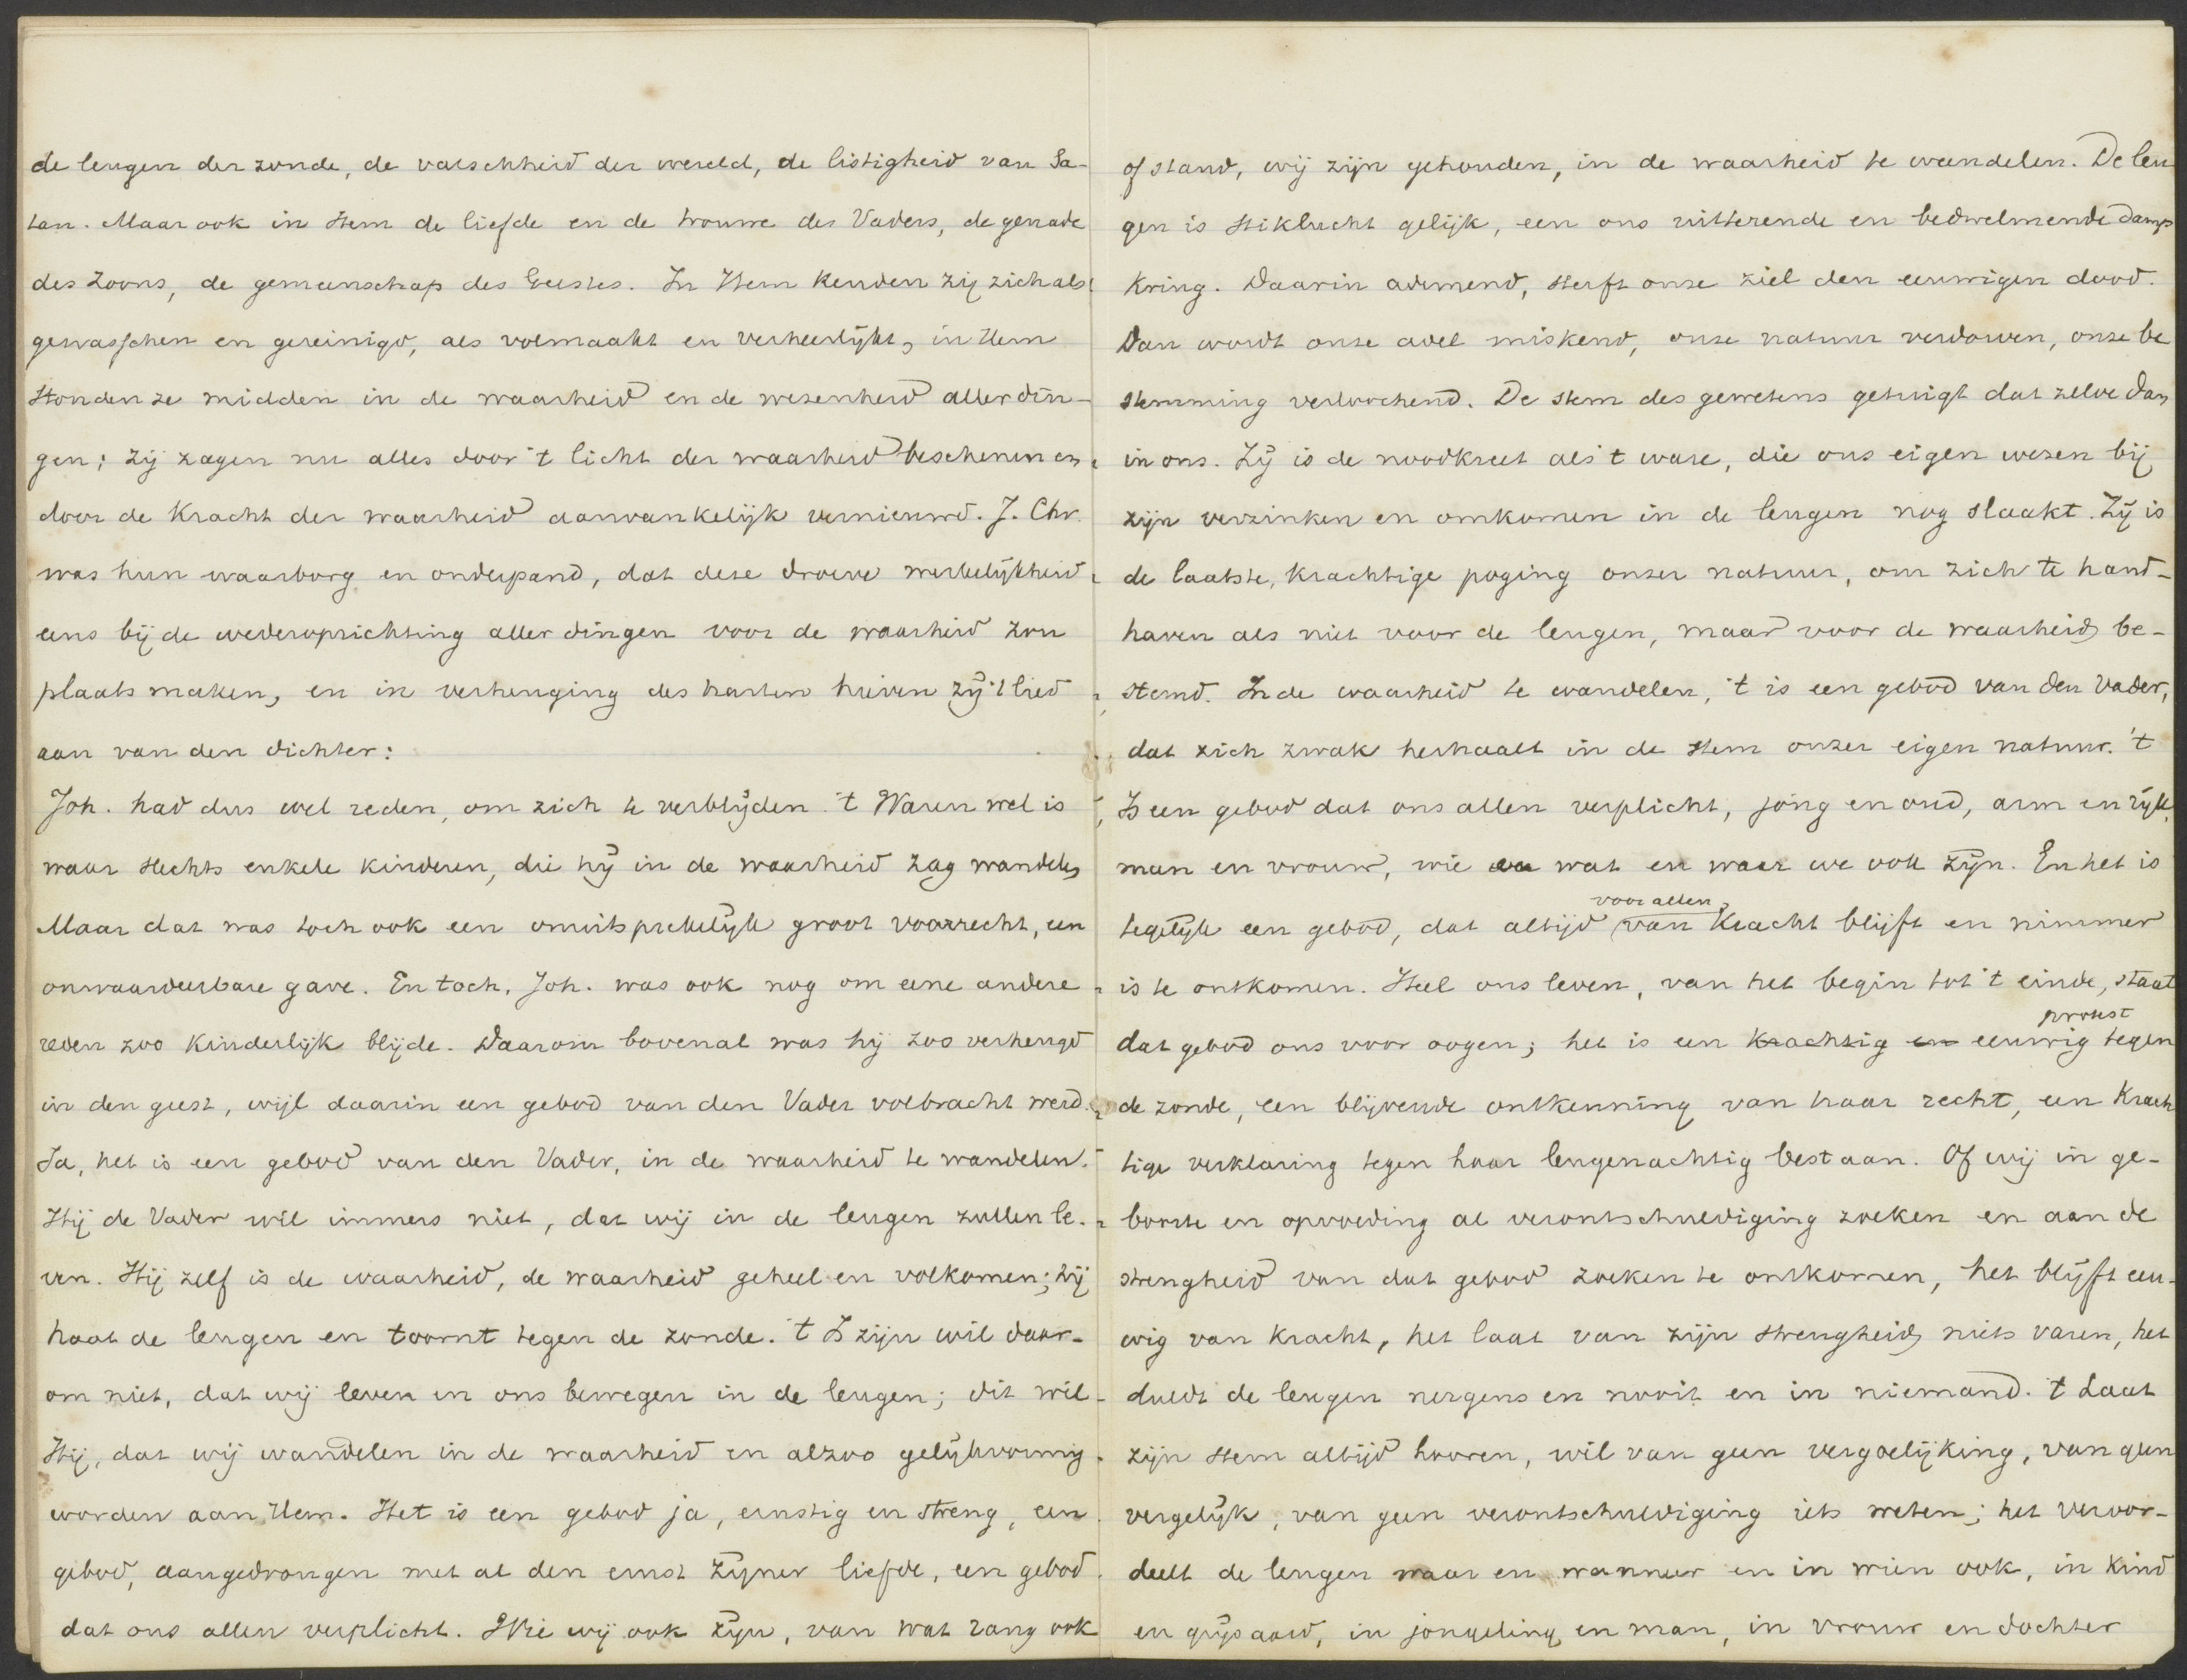 de leugen der zonde, de valschheid der wereld, de listigheid van Sa-
tan. Maar ook in Hem de liefde en de trouwe des Vaders, de genade
des Zoons, de gemeenschap des Geestes. In Hem kenden zij zich als
gewasschen en gereinigd, als volmaakt en verheerlijkt, in Hem
stonden ze midden in de waarheid en de wezenheid aller din-
gen; zij zagen nu alles door 't licht der waarheid beschenen en
door de kracht der waarheid aanvankelijk vernieuwd. J. Chr.
was hun waarborg en onderpand, dat deze droeve werkelijkheid
eens bij de wederoprichting aller dingen voor de waarheid zou
plaats maken, en in verheuging des harten hieven zij 't lied
aan van den dichter:
Joh. had dus wel reden, om zich te verblijden. 't Waren wel is
waar slechts enkele kinderen, die hij in de waarheid zag wandelen
Maar dat was toch ook een onuitsprekelijk groot voorrecht, een
onwaardeerbare gave. En toch, Joh. was ook nog om eene andere
reden zoo kinderlijk blijde. Daarom bovenal was hij zoo verheugd
in den geest, wijl daarin een gebod van den Vader volbracht werd.
Ja, het is een gebod van den Vader, in de waarheid te wandelen.
Hij de Vader wil immers niet, dat wij in de leugen zullen le-
ven. Hij zelf is de waarheid, de waarheid geheel en volkomen; hij
haat de leugen en toornt tegen de zonde. 't Is zijn wil daar-
om niet, dat wij leven en ons bewegen in de leugen; dit wil
Hij, dat wij wandelen in de waarheid en alzoo gelijkvormig
worden aan Hem. Het is een gebod ja, ernstig en streng, een
gebod, aangedrongen met al den ernst zijner liefde, een gebod
dat ons allen verplicht. Wie wij ook zijn, van wat rang ook
of stand, wij zijn gehouden, in de waarheid te wandelen. De leu
gen is stiklucht gelijk, een ons uitterende en bedwelmende damp
kring. Daarin ademend, sterft onze ziel den eeuwigen dood.
Dan wordt onze adel miskend, onze natuur verdorven, onze be
stemming verloochend. De stem des gewetens getuigt dat zelve dan
in ons. Zij is de noodkreet als 't ware, die ons eigen wezen bij
zijn verzinken en omkomen in de leugen nog slaakt. Zij is
de laatste, krachtige poging onzer natuur, om zich te hand-
haven als niet voor de leugen, maar voor de waarheid be-
stemd. In de waarheid te wandelen, 't is een gebod van den Vader,
dat zich zwak herhaalt in de stem onzer eigen natuur. 't
Is een gebod dat ons allen verplicht, jong en oud, arm en rijk,
man en vrouw, wie en wat en waar we ook zijn. En het is
voor allen
tegelijk een gebod, dat altijd van kracht blijft en nimmer
is te ontkomen. Heel ons leven, van het begin tot 't einde, staat
protest
dat gebod ons voor oogen; het is een krachtig en eeuwig tegen
de zonde, een blijvende ontkenning van haar recht, een krach
tige verklaring tegen haar leugenachtig bestaan. Of wij in ge-
boorte en opvoeding al verontschuldiging zoeken en aan de
strengheid van dat gebod zoeken te ontkomen, het blijft eeu-
wig van kracht, het laat van zijn strengheid niets varen, het
duldt de leugen nergens en nooit en in niemand. 't Laat
zijn stem altijd hooren, wil van geen vergoelijking, van geen
vergelijk, van geen verontschuldiging iets weten; het veroor-
deelt de leugen waar en wanneer en in wien ook, in kind
en grijsaard, in jongeling en man, in vrouw en dochter